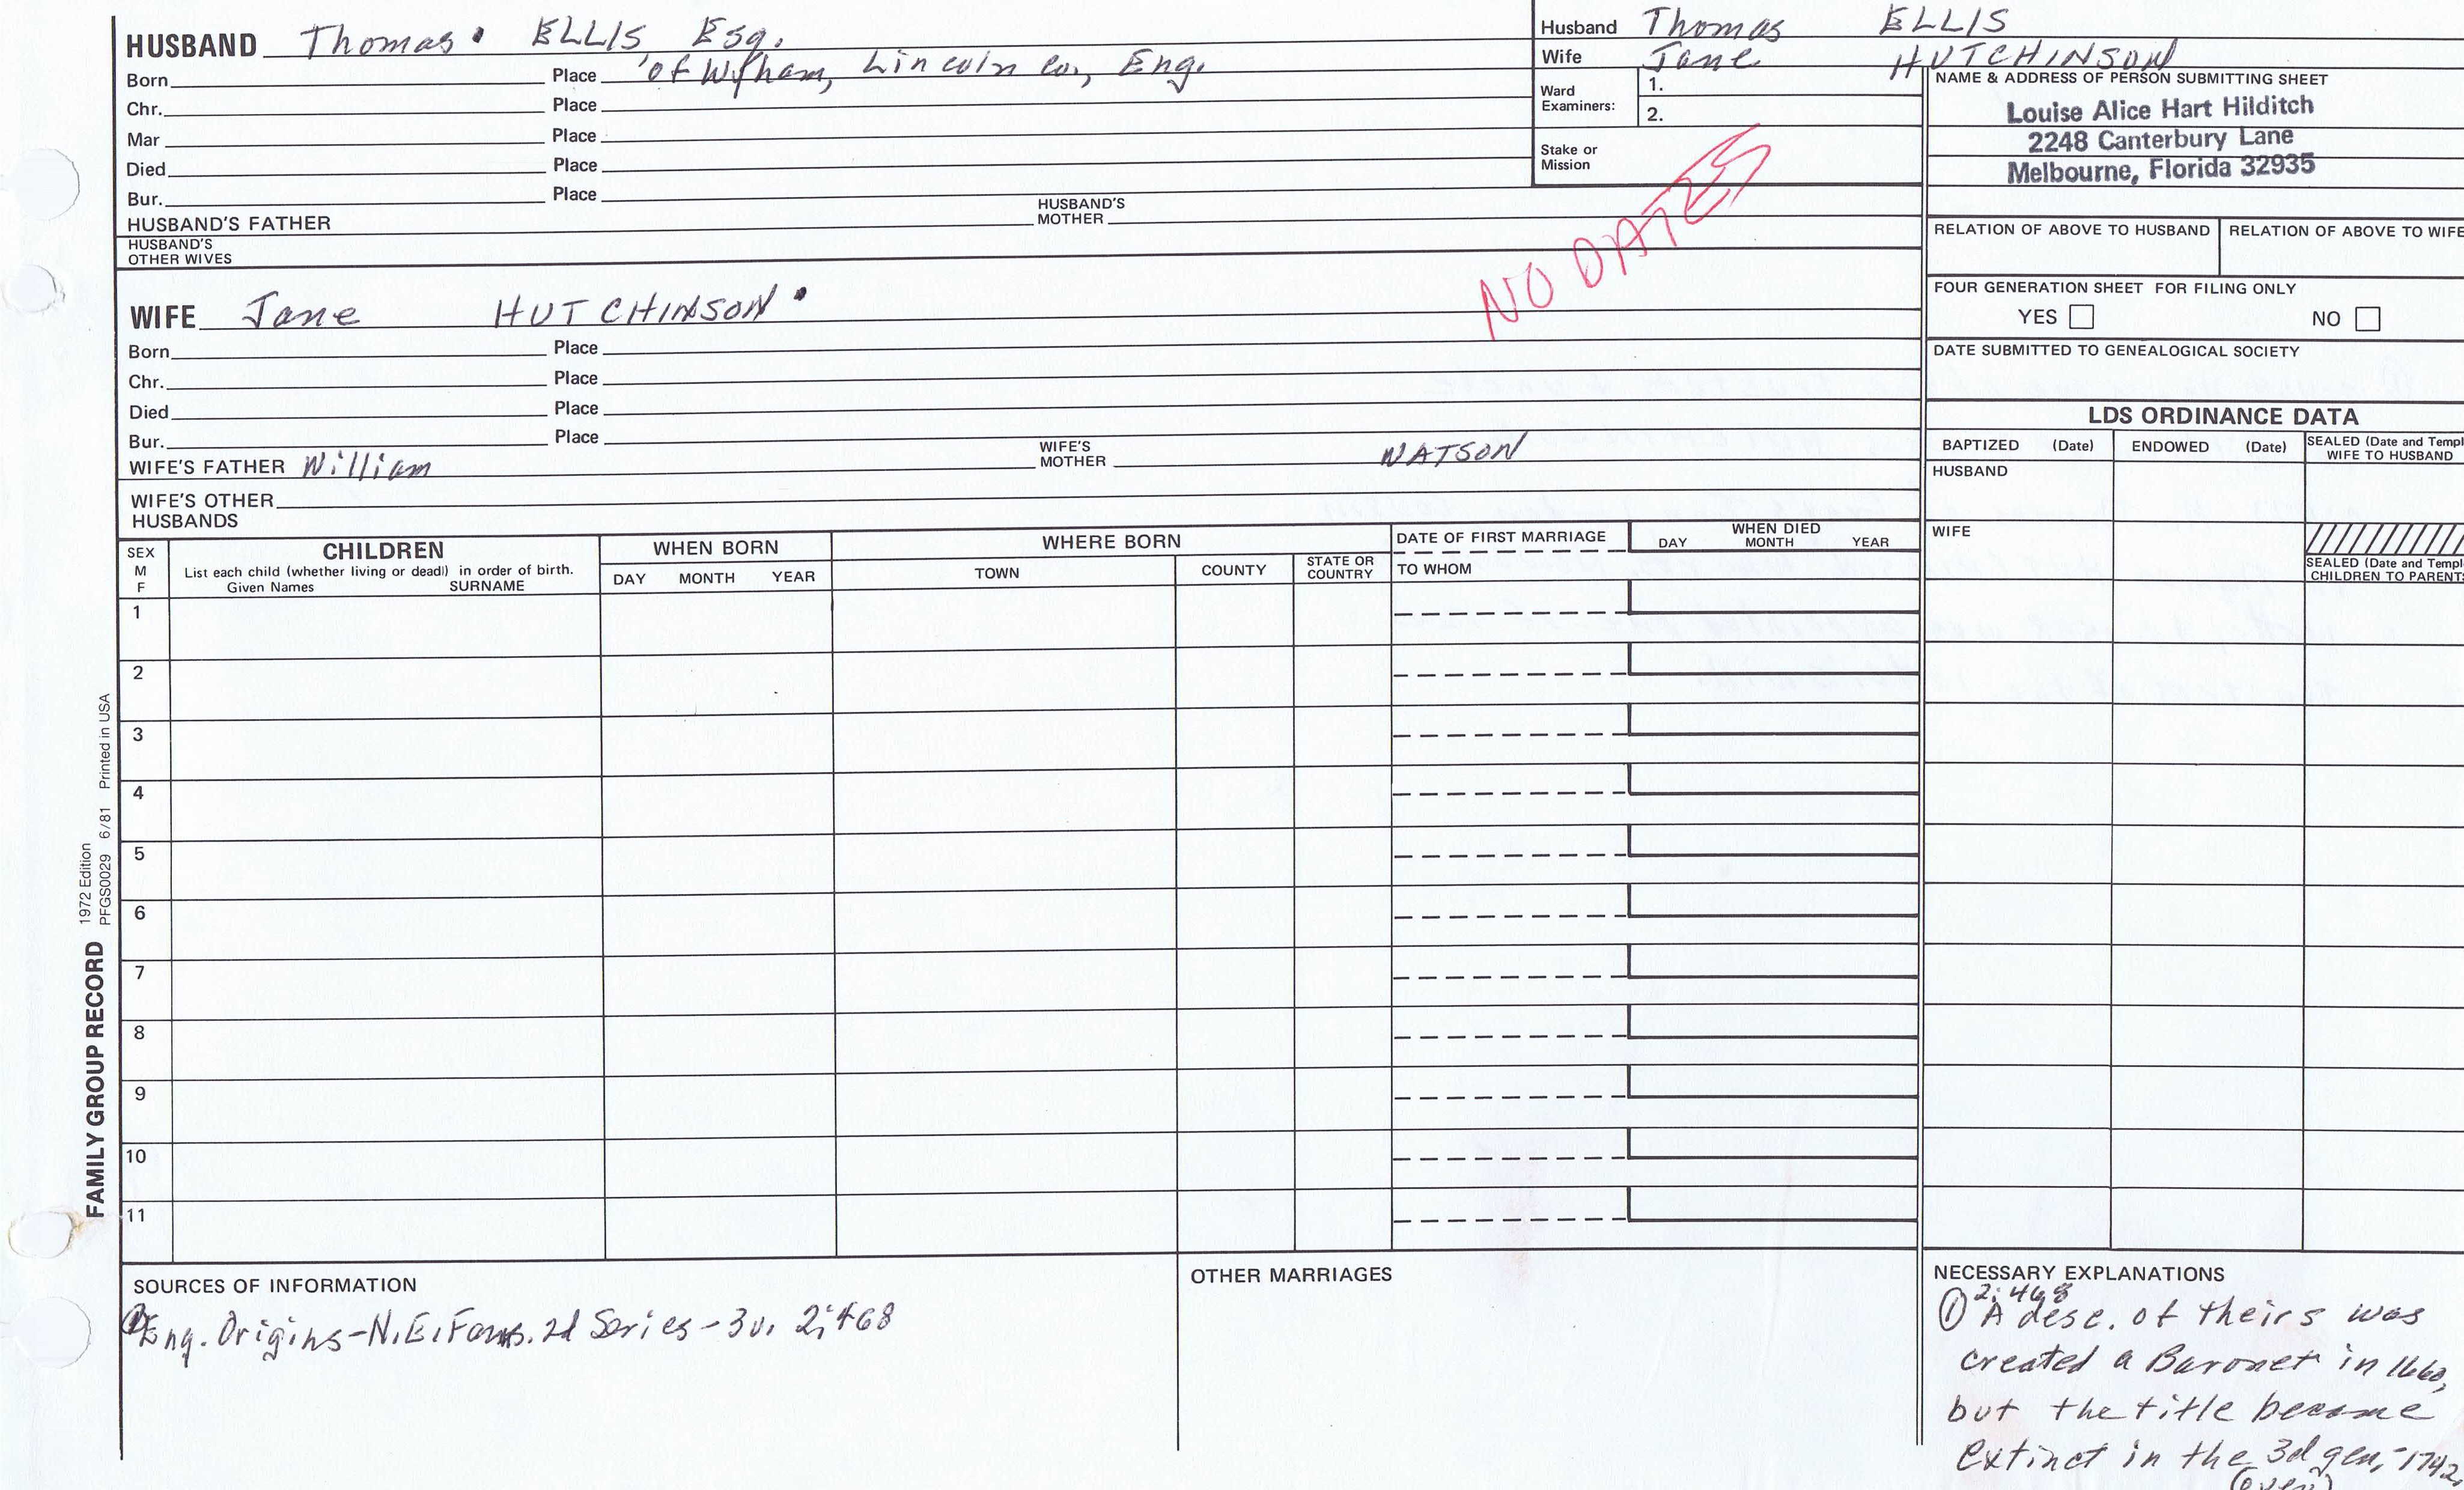 HUSBAND Thomas ELLIS Esq.
Born Place of Wyham, Lincoln Co., Eng.
Chr. Place
Mar Place
Died Place
Bur. Place
HUSBAND'S FATHER HUSBAND'S MOTHER
HUSBAND'S OTHER WIVES
Husband Thomas ELLIS
Wife Jane HUTCHINSON
Ward Examiners: 1.
2.
Stake or Mission
NO DATES
NAME & ADDRESS OF PERSON SUBMITTING SHEET
Louise Alice Hart Hilditch
2248 Canterbury Lane
Melbourne, Florida 32935
RELATION OF ABOVE TO HUSBAND RELATION OF ABOVE TO WIFE
FOUR GENERATION SHEET FOR FILING ONLY
YES NO
DATE SUBMITTED TO GENEALOGICAL SOCIETY
WIFE Jane HUTCHINSON
Born Place
Chr. Place
Died Place
Bur. Place
WIFE'S FATHER William WIFE'S MOTHER WATSON
WIFE'S OTHER HUSBANDS
LDS ORDINANCE DATA
BAPTIZED (Date) ENDOWED (Date) SEALED (Date and Templ
WIFE TO HUSBAND
HUSBAND
WIFE
SEALED (Date and Templ
CHILDREN TO PARENT
SEX
M
F
CHILDREN
List each child (whether living or dead) in order of birth.
Given Names SURNAME
WHEN BORN
DAY MONTH YEAR
WHERE BORN
TOWN COUNTY STATE OR COUNTRY
DATE OF FIRST MARRIAGE
TO WHOM
WHEN DIED
DAY MONTH YEAR
1
2
3
4
5
6
7
8
9
10
11
FAMILY GROUP RECORD
1972 Edition
PFGS0029 6/81 Printed in USA
SOURCES OF INFORMATION
① Eng. Origins-N.E. Fams. 2d Series-3v. 2:468
OTHER MARRIAGES
NECESSARY EXPLANATIONS
2:468
① A desc. of theirs was
created a Baronet in 1660,
but the title became
extinct in the 3d gen,-1742,
(over)